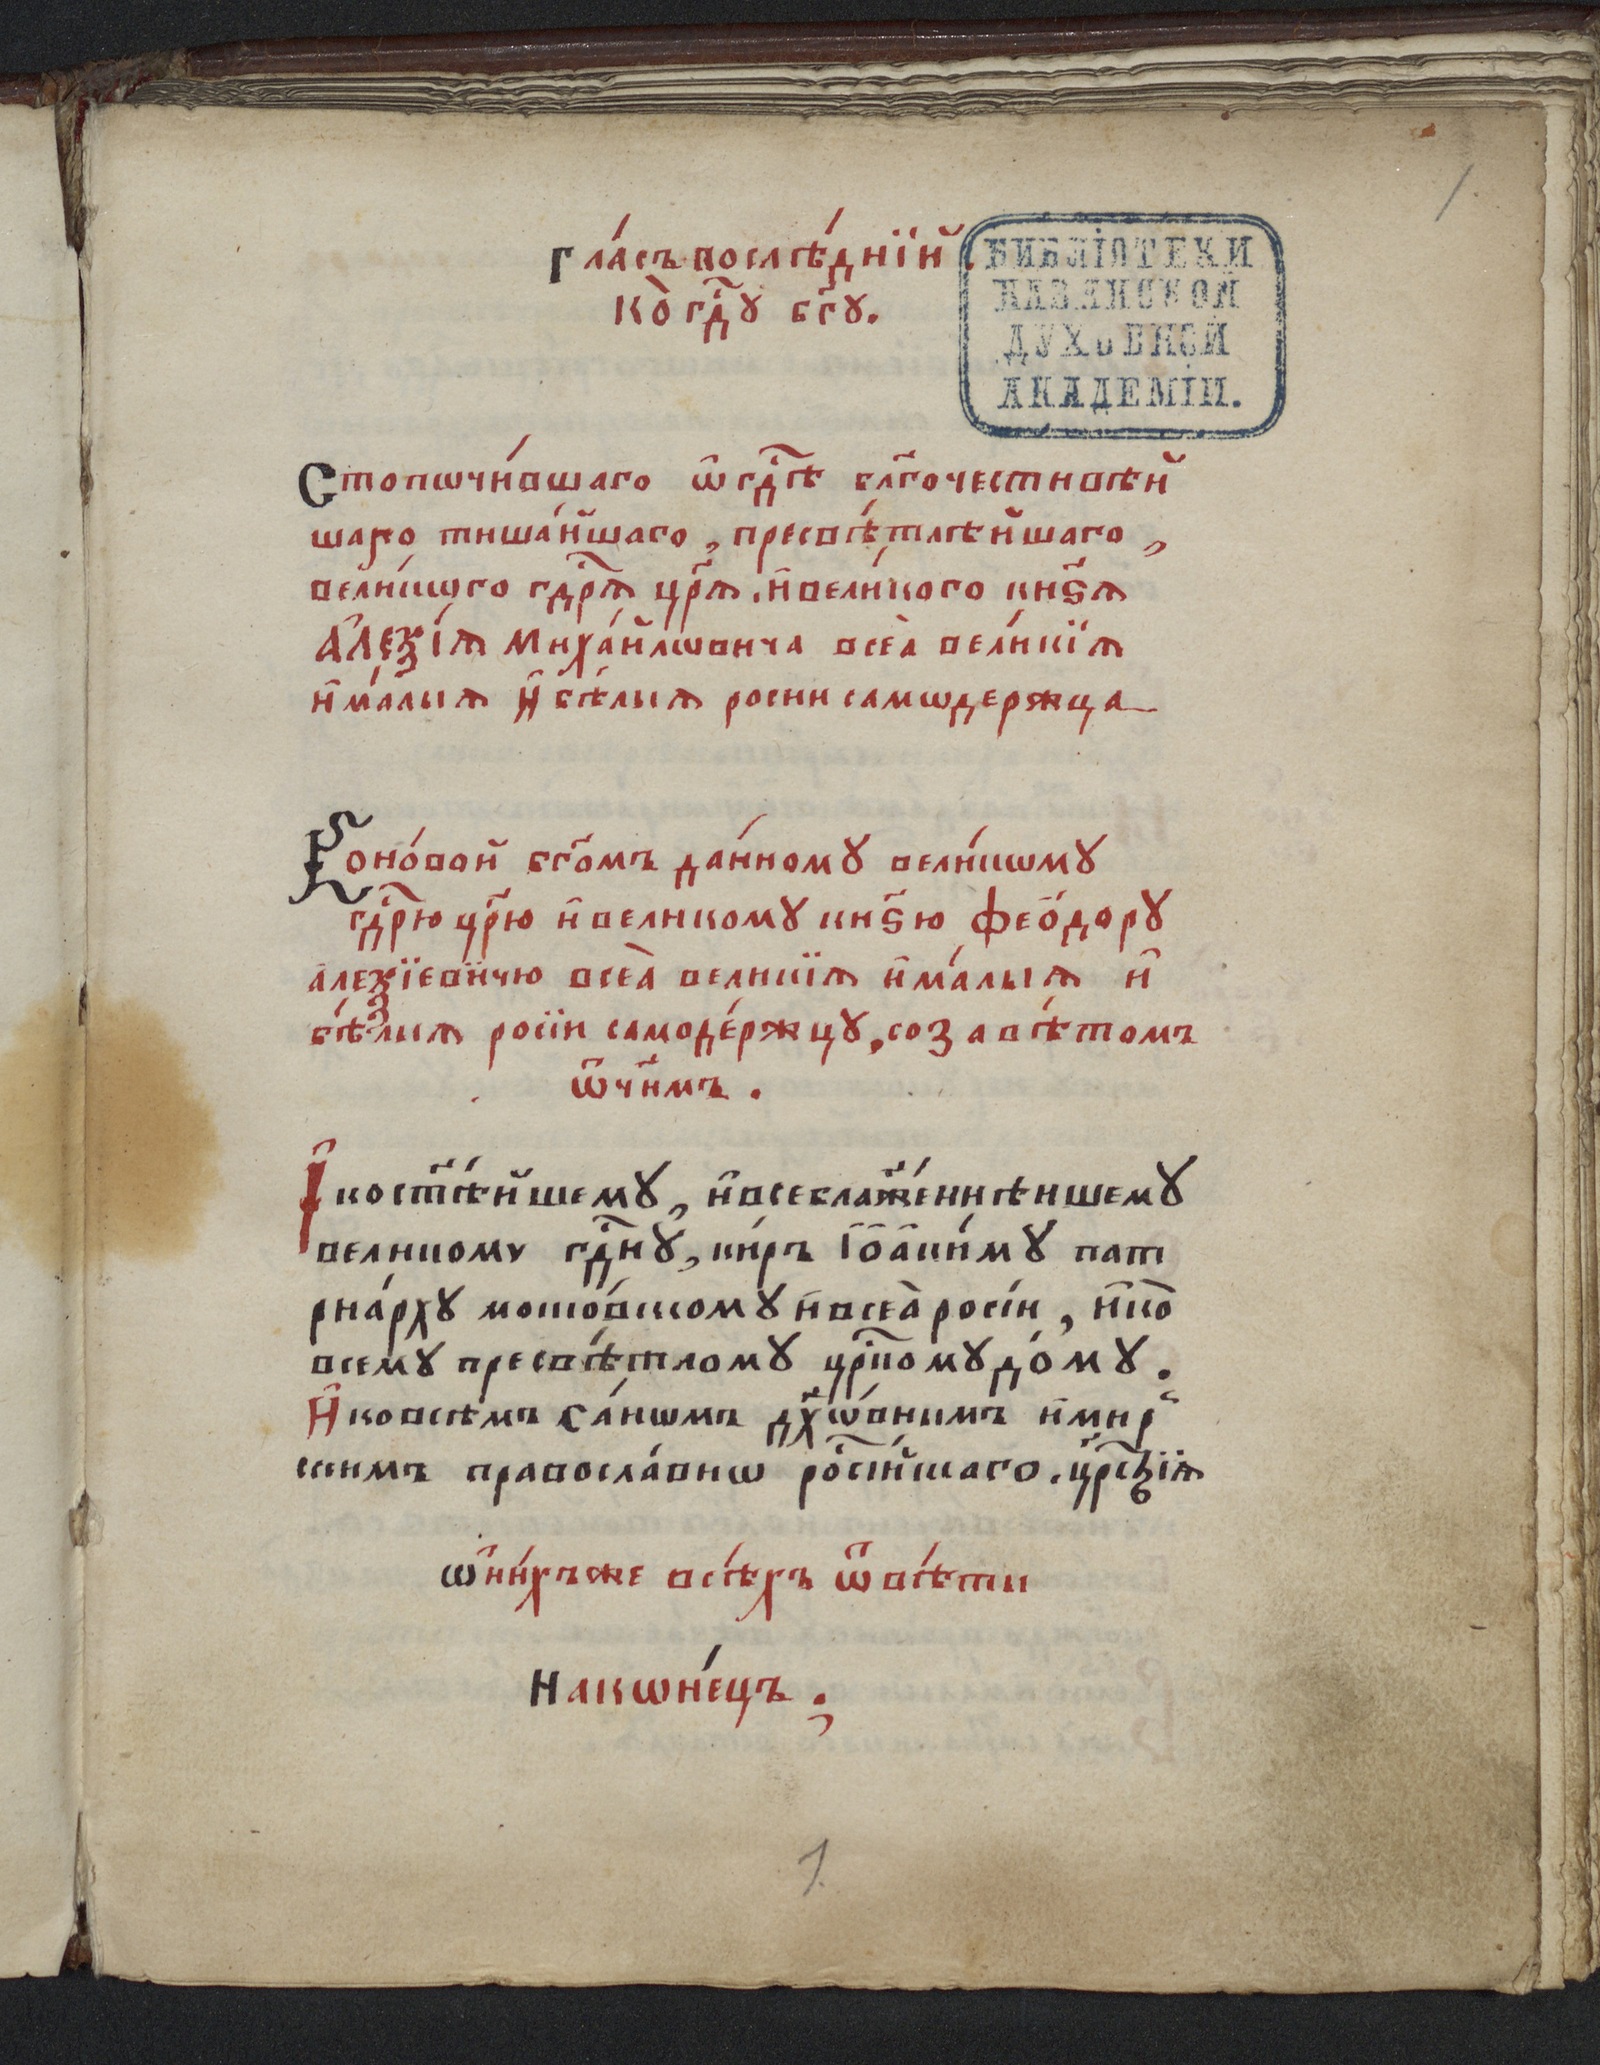 Гла́съ послѣ́днїй.
Ко̀ гдⷭ҇у бг҃у.
БИБЛІОТЕКИ
КАЗАНСКОЙ
ДУХОВНОЙ
АКАДЕМІИ.
1
Стопочи́вшаго ѡ҆ гдⷭ҇ѣ блг҃очестивѣй
шаго тиша́йшаго, пресвѣ́тлѣйшаго,
вели́кѡго гдⷭ҇рѧ цр҃ѧ. и҆ вели́кого кнѕ҃ѧ
А҆ле́ѯїѧ Миха́йлѡвича всеѧ̀ вели́кїѧ
и҆ ма́лыѧ и҆ бѣ́лыѧ росии самѡдержца
Ко но́вой бг҃омъ да́нному вели́кѡму
гдⷭ҇рю цр҃ю и҆ великому кнѕ҃ю Ѳео́дору
але́ѯїевичю всеѧ̀ великїѧ и҆ ма́лыѧ и҆
бѣ́лыѧ росїи самоде́ржцу, со завѣ́томъ
ѻ҆́чимъ.
І҆ ко ст҃ѣ́йшему, и҆ всеблаже́ннѣишему
великому гдⷭ҇ну, ки́ръ І҆ѡ҆аки́му пат
риа́рху моско́вскому и҆ всеѧ̀ росі́и, и҆ ко̀
всему пресвѣ́тлому цр҃кому до́му.
И҆ ко всѣмъ са́нѡмъ дх҃ѡ́внымъ и҆ мир
скимъ правосла́внѡ росі́йскаго. црⷭ҇твїѧ
ѿ ни́хъже всѣ́хъ ѿвѣ́ты
На кѡне́цъ.
1.